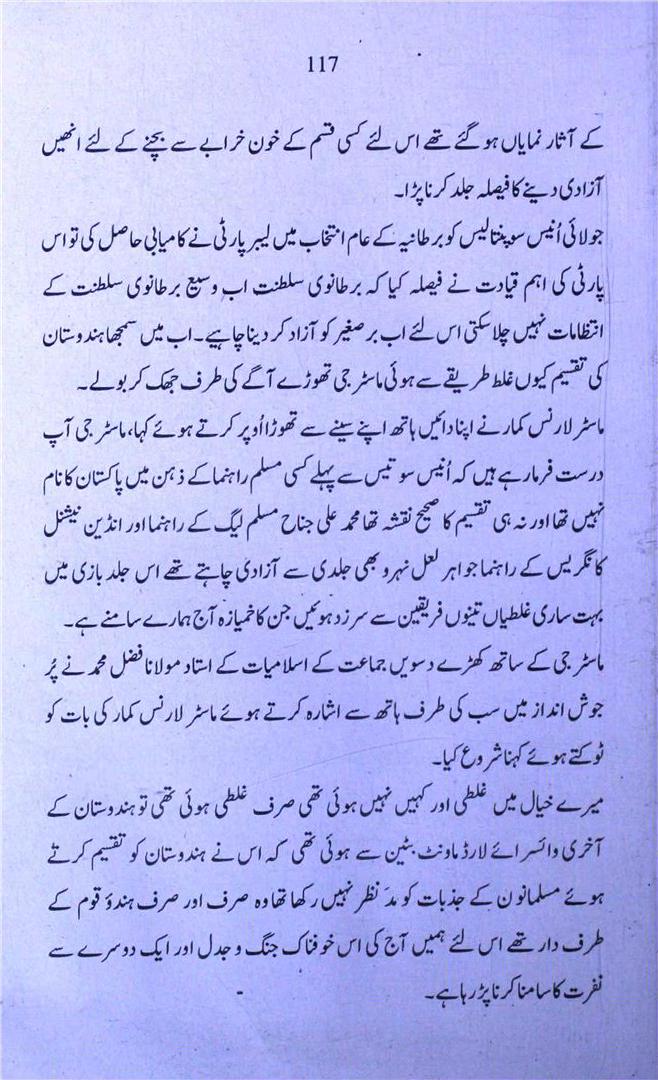 117
کے آثار نمایاں ہو گئے تھے اس لئے کسی قسم کے خون خرابے سے بچنے کے لئے انھیں
آزادی دینے کا فیصلہ جلد کرنا پڑا۔
جولائی اُنیس سو پینتالیس کو برطانیہ کے عام انتخاب میں لیبر پارٹی نے کامیابی حاصل کی تو اس
پارٹی کی اہم قیادت نے فیصلہ کیا کہ برطانوی سلطنت اب وسیع برطانوی سلطنت کے
انتظامات نہیں چلا سکتی اس لئے اب برصغیر کو آزاد کر دینا چاہیے۔ اب میں سمجھا ہندوستان
کی تقسیم کیوں غلط طریقے سے ہوئی ماسٹر جی تھوڑے آگے کی طرف جھک کر بولے۔
ماسٹر لارنس کمار نے اپنا دائیں ہاتھ اپنے سینے سے تھوڑا اُوپر کرتے ہوئے کہا، ماسٹر جی آپ
درست فرما رہے ہیں کہ اُنیس سو تیس سے پہلے کسی مسلم راہنما کے ذہن میں پاکستان کا نام
نہیں تھا اور نہ ہی تقسیم کا صحیح نقشہ تھا محمد علی جناح مسلم لیگ کے راہنما اور انڈین نیشنل
کانگریس کے راہنما جواہر لعل نہرو بھی جلدی سے آزادی چاہتے تھے اس جلد بازی میں
بہت ساری غلطیاں تینوں فریقین سے سرزد ہوئیں جن کا خمیازہ آج ہمارے سامنے ہے۔
ماسٹر جی کے ساتھ کھڑے دسویں جماعت کے اسلامیات کے استاد مولانا فضل محمد نے پُر
جوش انداز میں سب کی طرف ہاتھ سے اشارہ کرتے ہوئے ماسٹر لارنس کمار کی بات کو
ٹوکتے ہوئے کہنا شروع کیا۔
میرے خیال میں غلطی اور کہیں نہیں ہوئی تھی صرف غلطی ہوئی تھی تو ہندوستان کے
آخری وائسرائے لارڈ ماونٹ بٹین سے ہوئی تھی کہ اس نے ہندوستان کو تقسیم کرتے
ہوئے مسلمانون کے جذبات کو مدَ نظر نہیں رکھا تھا وہ صرف اور صرف ہندؤ قوم کے
طرف دار تھے اس لئے ہمیں آج کی اس خوفناک جنگ و جدل اور ایک دوسرے سے
نفرت کا سامنا کرنا پڑ رہا ہے۔